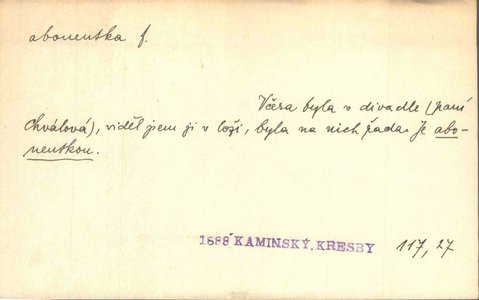 abonentka f.
Včera byla v divadle (paní
Chválová), viděl jsem ji v loži, byla na nich řada. Je abo-
nentkou.
1888 KAMINSKÝ, KRESBY 117, 27